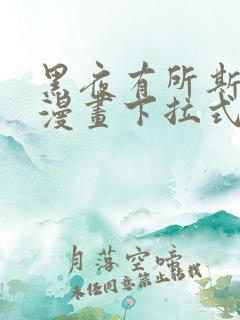 黑夜有所斯
漫畫下拉式
月落空啼
未经同意禁止转载